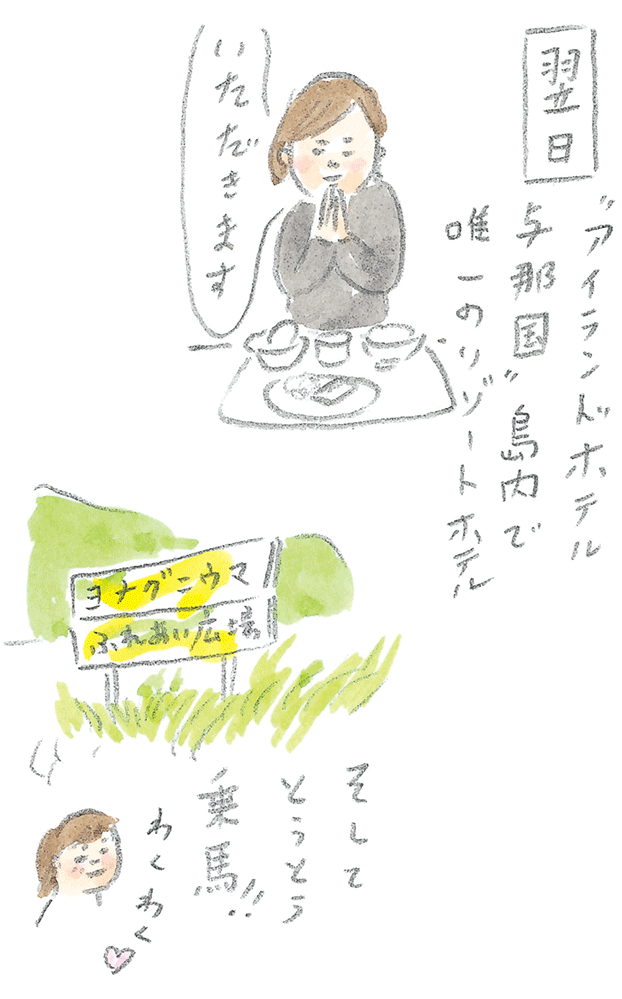 翌日
"アイランドホテル
与那国"島内で
唯一のリゾートホテル
いただきます
ヨナグニウマ
ふれあい広場
そして
とうとう
乗馬!!
わくわく♡